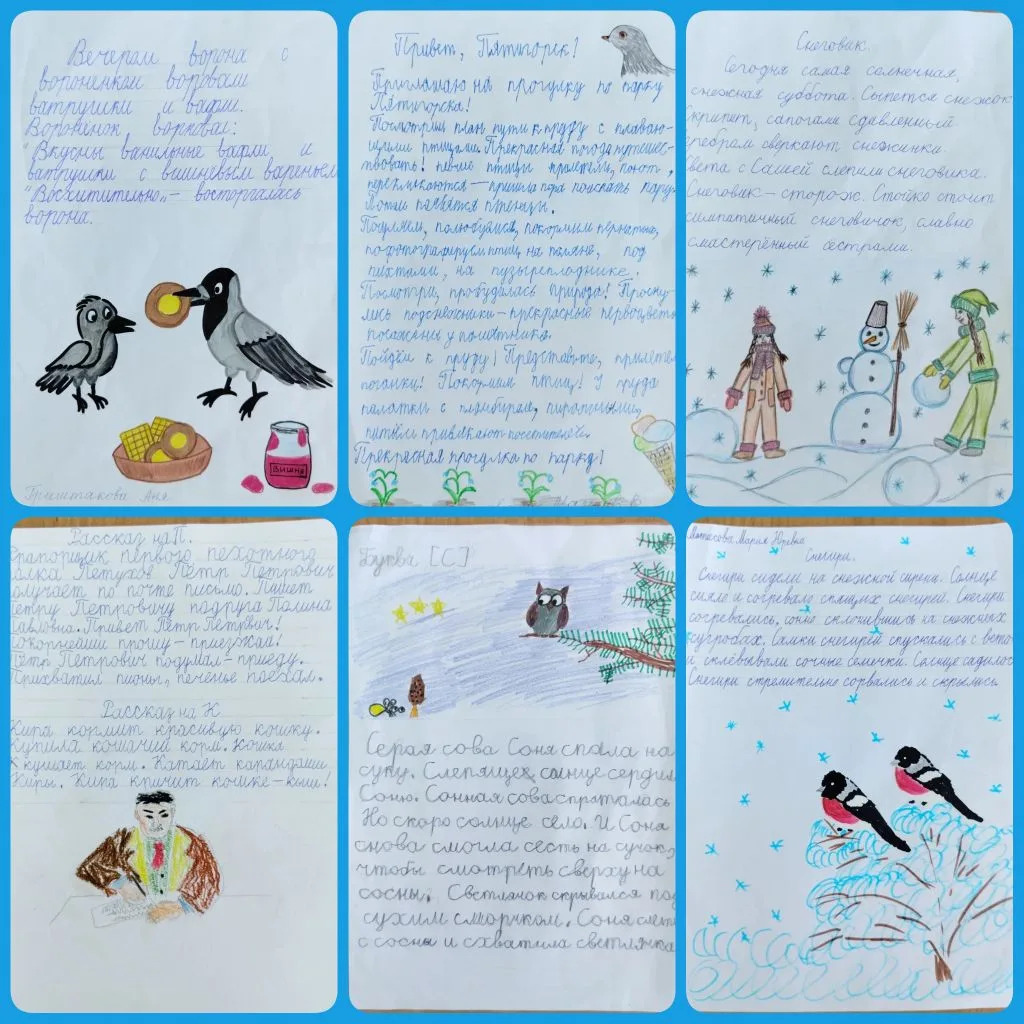 Вечерам ворона с
вороненкам воровали
ватрушки и вафли.
Воронёнок ворковал:
"Вкусны ванильные вафли и
ватрушки с вишнёвым вареньем
"Восхитительно„- восторгалась
ворона.
ВИШНЯ
Гриштакова Аня
Привет, Пятигорск!
Приглашаю на прогулку по парку
Пятигорска!
Посмотрим план пути к пруду с плаваю-
щими птицами. Прекрасная погода путешес-
твовать! певчие птицы прилетели, поют,
перекликаются — пришла пора поискать пару.
Потом появятся птенцы.
Погуляем, полюбуемся, покормим пернатых,
пофотографируем птиц на поляне, под
пихтами, на пузыреплоднике.
Посмотри, пробудилась природа! Просну-
лись подснежники - прекрасные первоцветы
посажены у памятника.
Пойдём к пруду! Представьте, прилетели
поганки! Покормим птиц! У пруда
палатки с пломбиром, пирожными,
питьём привлекают посетителей.
Прекрасная прогулка по парку!
Снеговик.
Сегодня самая солнечная,
снежная суббота. Сыпется снежок
Скрипит, сапогами сдавленный
Серебром сверкают снежинки.
Света с Сашей слепили снеговика.
Снеговик - сторож. Стойко стоит
симпатичный снеговичок, славно
смастерённый сёстрами.
Рассказ на П.
Прапорщик первого пехотного
полка Петухов Пётр Петрович
получает по почте письмо. Пишет
Петру Петровичу подруга Полина
Павловна. Привет Пётр Петрович!
Покорнейши прошу - приезжай!
Пётр Петрович подумал - приеду.
Прихватил пионы, печенье поехал.
Рассказ на К
Кира кормит красивую кошку.
Купила кошачий корм. Кошка
кушает корм. Катает карандаши
Киры. Кира кричит кошке - кыш!
Буква [С]
Серая сова Соня спала на
суку. Слепящее солнце сердил
Соню. Сонная сова спряталась
Но скоро солнце село. И Соня
снова смогла сесть на сучок,
чтобы смотреть сверху на
сосны. Светлячок скрывался под
сухим сморчком. Соня слете
с сосны и схватила светлячка
Мария Юрьевна
Снегири.
Снегири сидели на снежной сирени. Солнце
сияло и согревало спящих снегирей. Снегири
согревались, сонно склонившись на снежных
сугробах. Самки снегирей спускались с веток
и склёвывали сочные семечки. Солнце садилось
Снегири стремительно сорвались и скрылись.